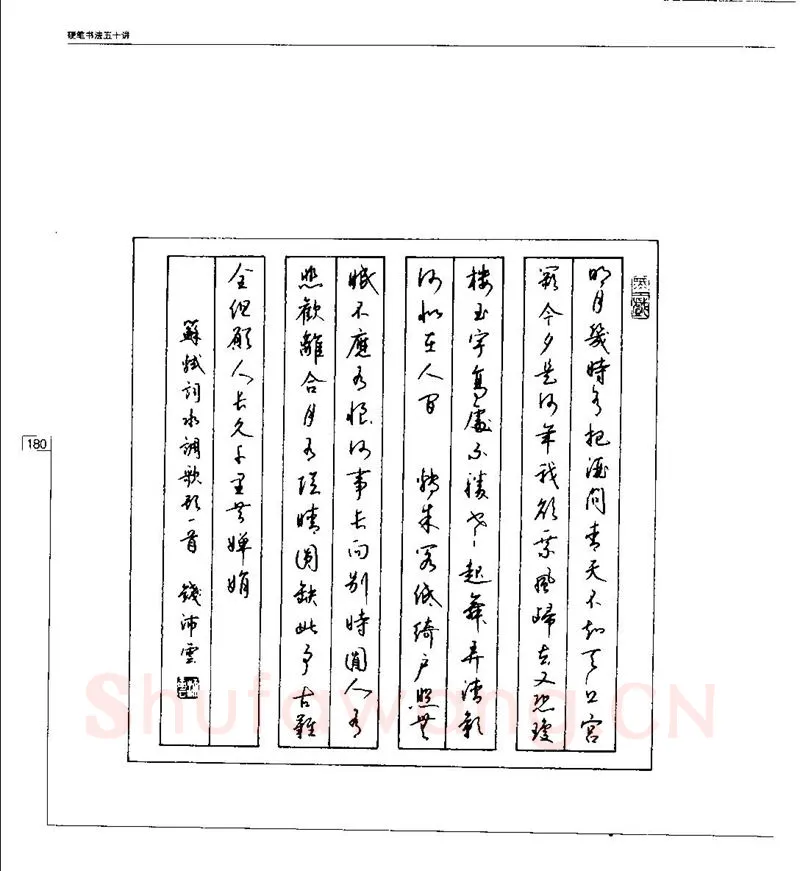 硬笔书法五十讲
明月幾時有把酒問青天不知天上宮
闕今夕是何年我欲乘風歸去又恐瓊
樓玉宇高處不勝寒起舞弄清影
何似在人间 轉朱閣低綺户照無
眠不應有恨何事长向别時圓人有
悲歡離合月有陰晴圓缺此事古難
全但願人长久千里共嬋娟
蘇軾詞水調歌頭一首 錢沛雲
180
Shufawong.CN